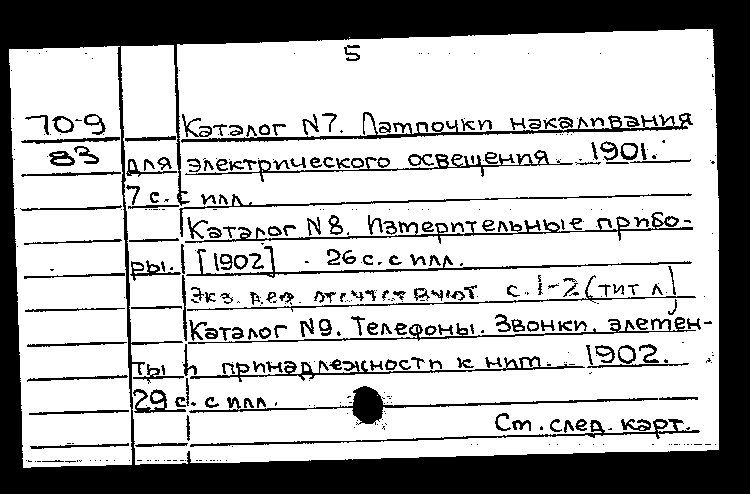 5
70-9 Каталог N7. Лампочки накаливания
83 для электрического освещения. 1901.
7 с. с илл.
Каталог N8. Измерительные прибо-
ры. [1902] . 26 с. с илл.
Экз. деф. отсутствуют с. 1-2 (тит л)
Каталог N9. Телефоны. Звонки. элемен-
ты и принадлежности к ним. 1902.
29 с. с илл.
См. след. карт.